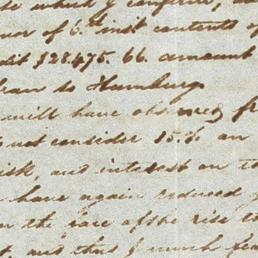 which I confirm, and
of 6th inst contents of
$28.475.66. amount
to Hamburg
will have observed fr
not consider 15.% an
isk, and interest on t
have again reduced y
on the face of the rise th
but thus I much fea